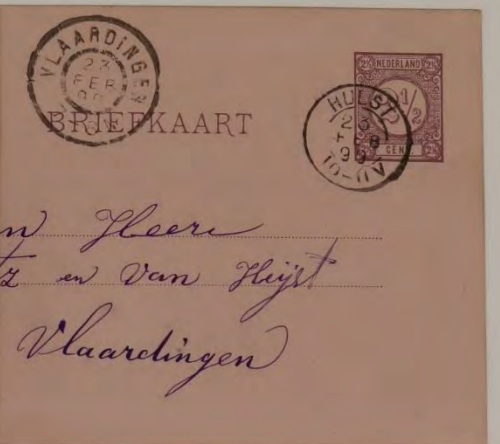 VLAARDINGEN
23
FEB
BRIEFKAART
2½ NEDERLAND 2½
2½
CENT
HULST
23
FEB
99
10-11V
n Heere
tz en Van Heijst
Vlaardingen